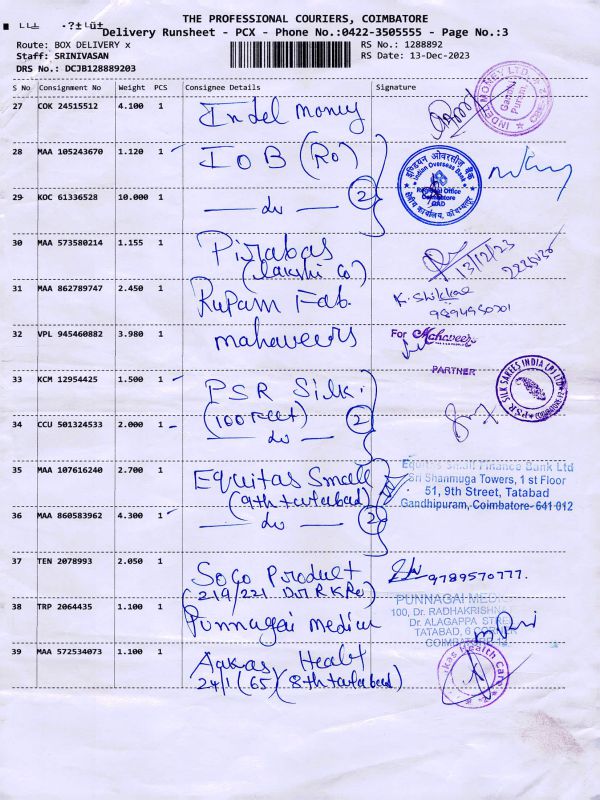 THE PROFESSIONAL COURIERS, COIMBATORE
Delivery Runsheet - PCX - Phone No.:0422-3505555 - Page No.:3
Route: BOX DELIVERY x
RS No.: 1288892
Staff: SRINIVASAN
RS Date: 13-Dec-2023
DRS No.: DCJB128889203
S No Consignment No Weight PCS Consignee Details Signature
27 COK 24515512 4.100 1 Indel Money
INDEL MONEY LTD
Gandhi
Puram
28 MAA 105243670 1.120 1 IOB (RO)
इण्डियन ओवरसीज़ बैंक
Indian Overseas Bank
Regional Office
Coimbatore
क्षेत्रीय कार्यालय, कोयम्बत्तूर
29 KOC 61336528 10.000 1 — do — 2
30 MAA 573580214 1.155 1 Pirabas
(lakshi Co)
13/12/23
31 MAA 862789747 2.450 1 Rupam Fab.
K. Shikkae
9894950701
32 VPL 945460882 3.980 1 mahaveers
For Mahaveers
PARTNER
33 KCM 12954425 1.500 1 PSR Silk.
(100 Feet)
PSR SILK SAREES INDIA (P) LTD
34 CCU 501324533 2.000 1 — do — 2
35 MAA 107616240 2.700 1 Equitas Small
(9th tatabad)
Equitas Small Finance Bank Ltd
Sri Shanmuga Towers, 1 st Floor
51, 9th Street, Tatabad
Gandhipuram, Coimbatore- 641 012
36 MAA 860583962 4.300 1 — do — 2
37 TEN 2078993 2.050 1 Sogo Product
(219/221 Dr R K Rd)
9789570777.
38 TRP 2064435 1.100 1 Punnagai medica
PUNNAGAI MEDIC
100, Dr. RADHAKRISHNA
Dr. ALAGAPPA STRE
TATABAD, 6 CORNER
COIMBATORE-12
39 MAA 572534073 1.100 1 Aakas Healt
24/1 (65) (8th tatabad)
kas Health Care